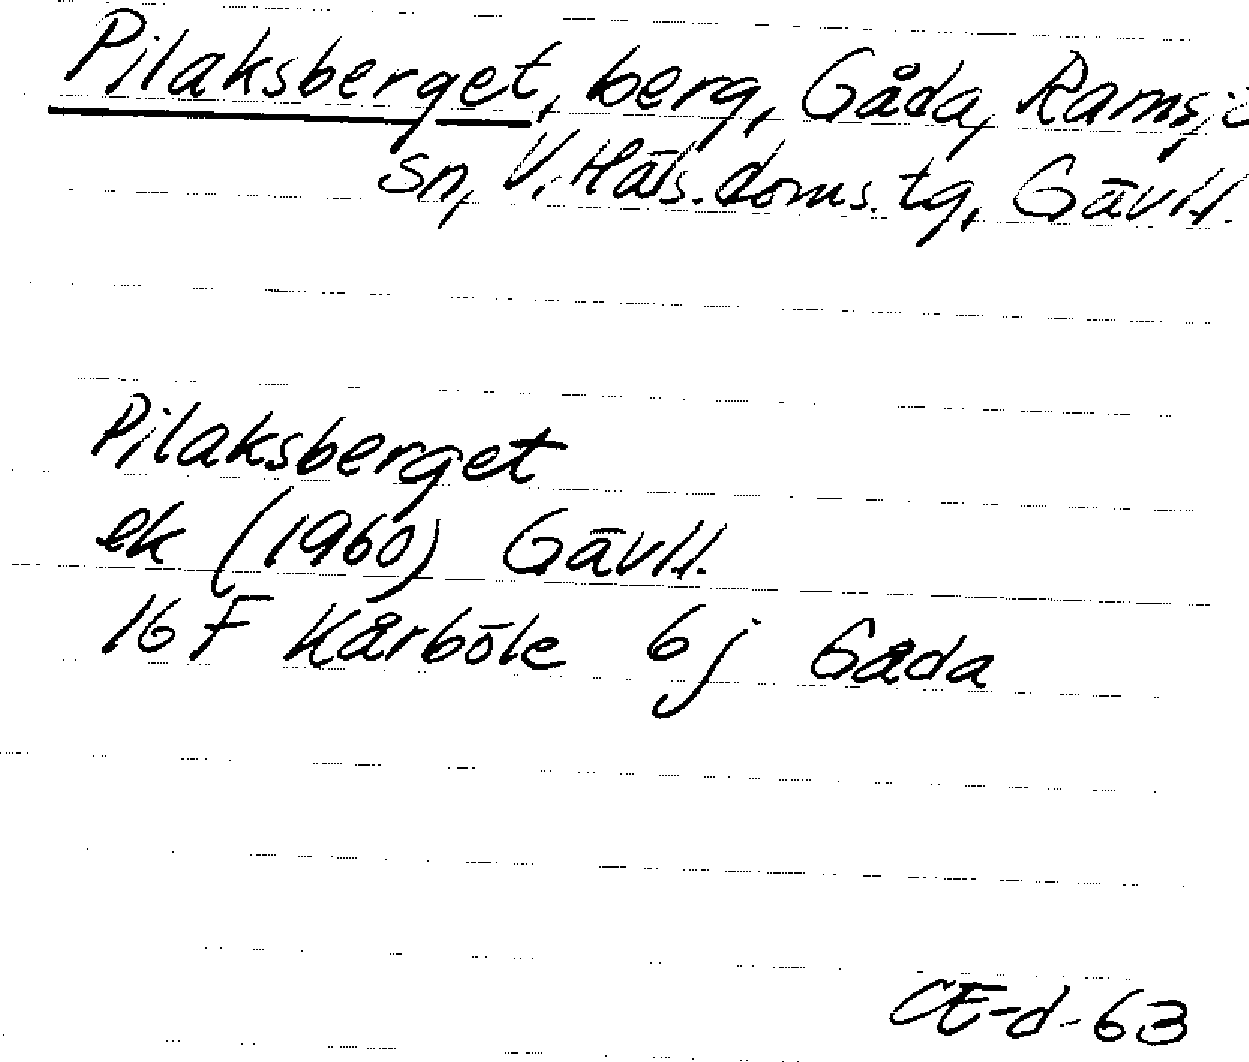 Pilaksberget, berg, Gåda, Ramsjö
sn, V. Häls. doms. tg, Gävl l.
Pilaksberget
ek (1960) Gävl l.
16 F Kårböle 6 j Gåda
CE-d-63